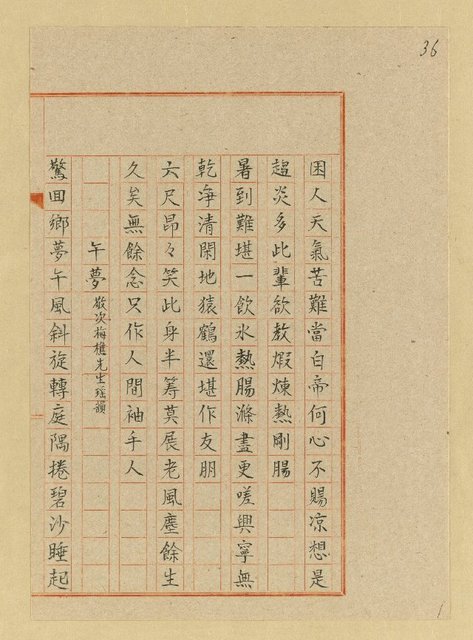 36
困人天氣苦難當白帝何心不賜凉想是
趨炎多此輩欲教煆煉熱剛腸
暑到難堪一飲氷熱腸滌盡更嗟興寧無
乾淨清閑地猿鶴還堪作友朋
六尺昂々笑此身半籌莫展老風塵餘生
久矣無餘念只作人間袖手人
午夢 敬次梅樵先生瑤韻
驚回鄉夢午風斜旋轉庭隅捲碧沙睡起